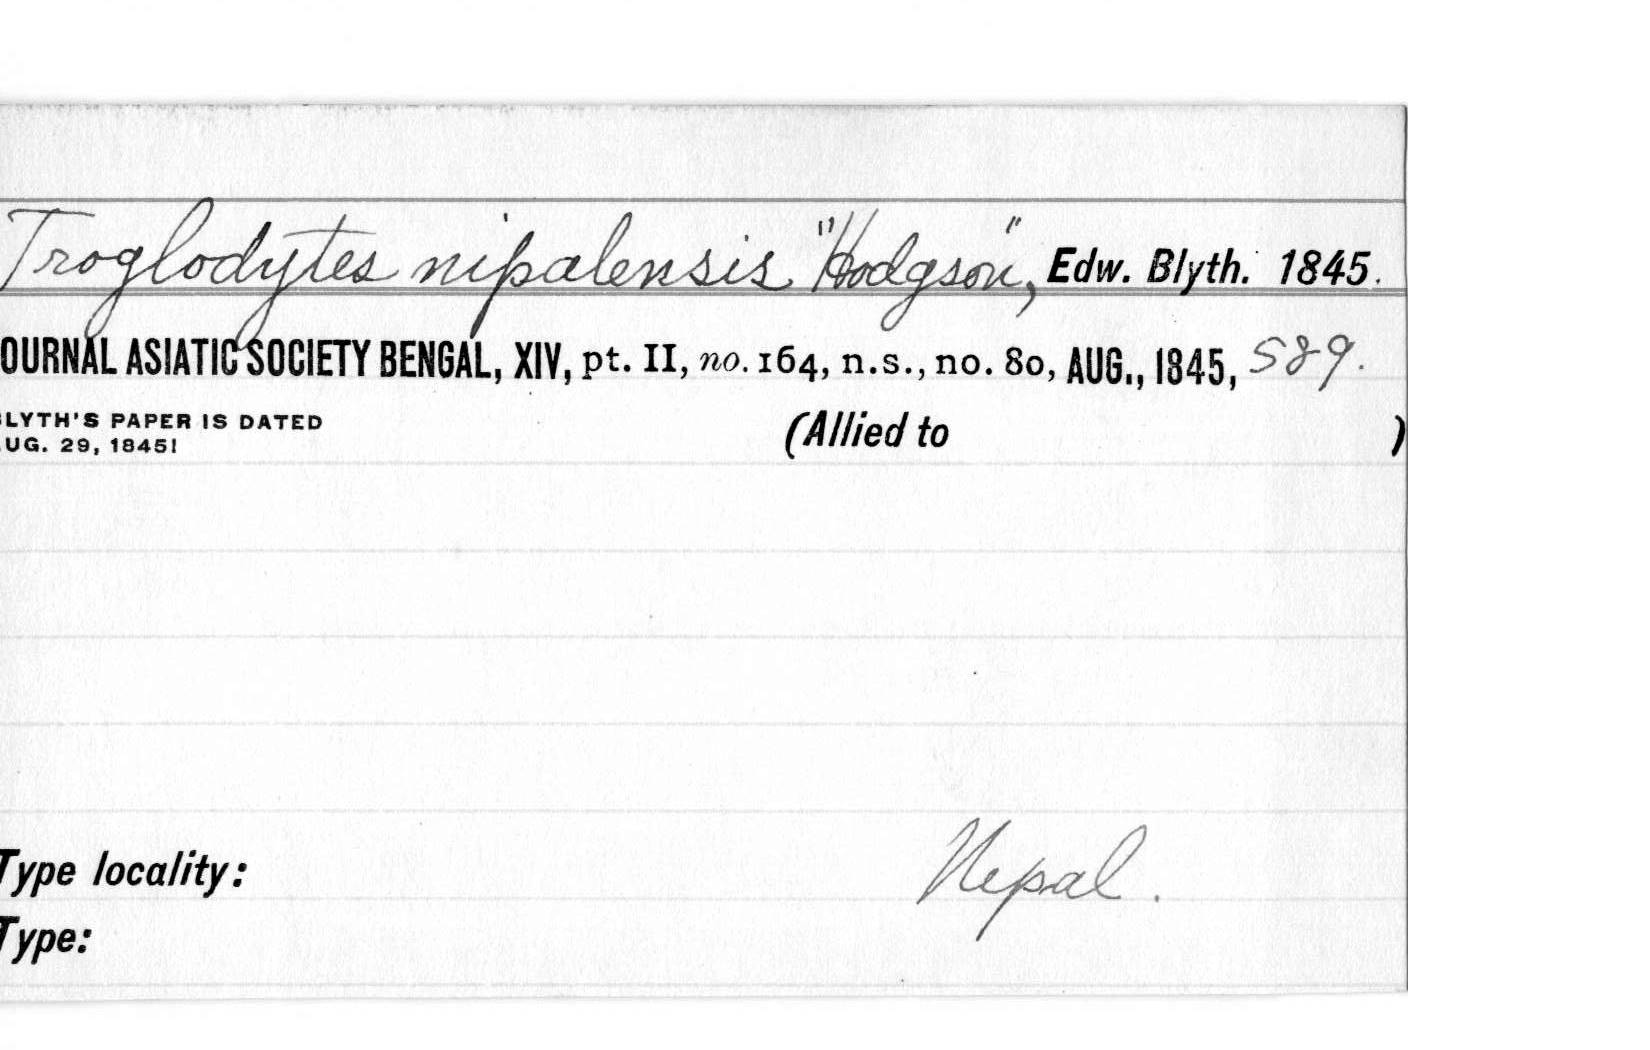 Troglodytes nipalensis "Hodgson", Edw. Blyth. 1845.
OURNAL ASIATIC SOCIETY BENGAL, XIV, pt. II, no. 164, n.s., no. 80, AUG., 1845, 589.
LYTH'S PAPER IS DATED
UG. 29, 1845!
(Allied to )
Nepal.
Type locality:
Type: